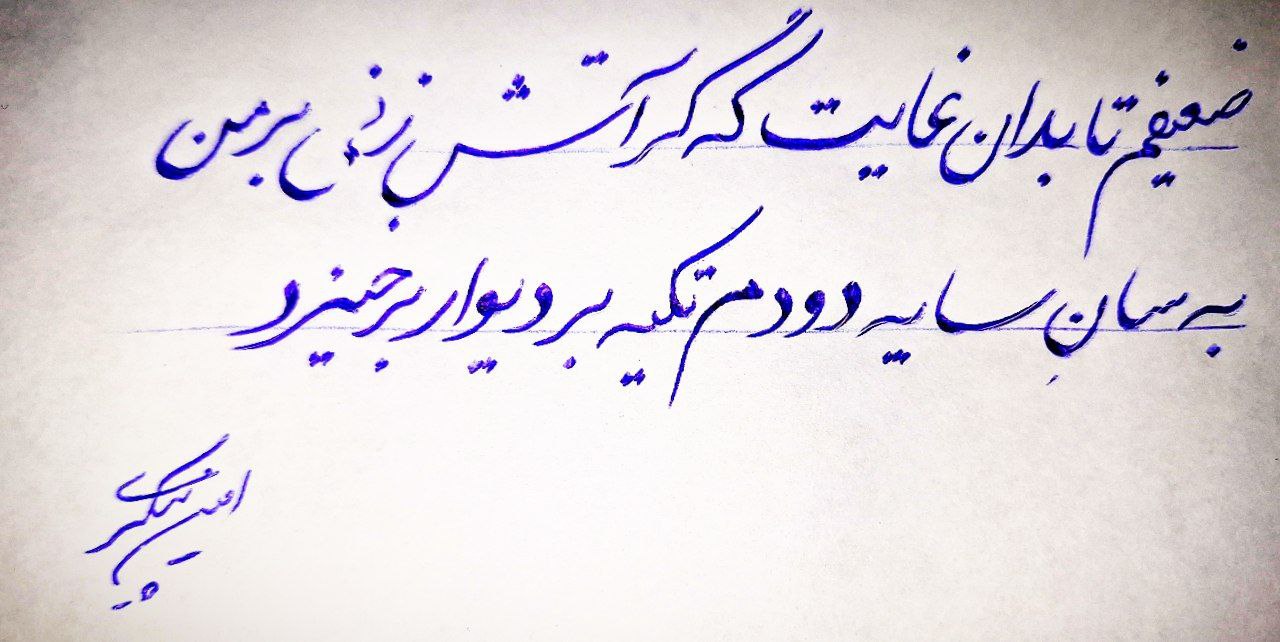 ضعیفم تا بدان غایت که گر آتش زنی بر من
به سانِ سایه دودم تکیه بر دیوار برخیزد